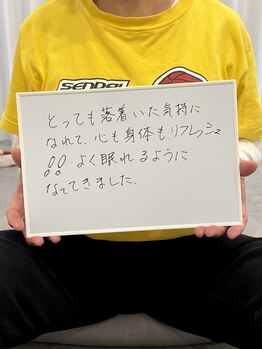 SENDAI
とっても落着いた気持に
なれて、心も身体もリフレッシュ
!! よく眠れるように
なってきました.